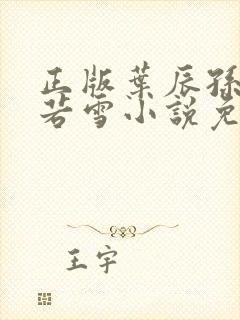 正版葉辰孫
若雪小說免
王宇